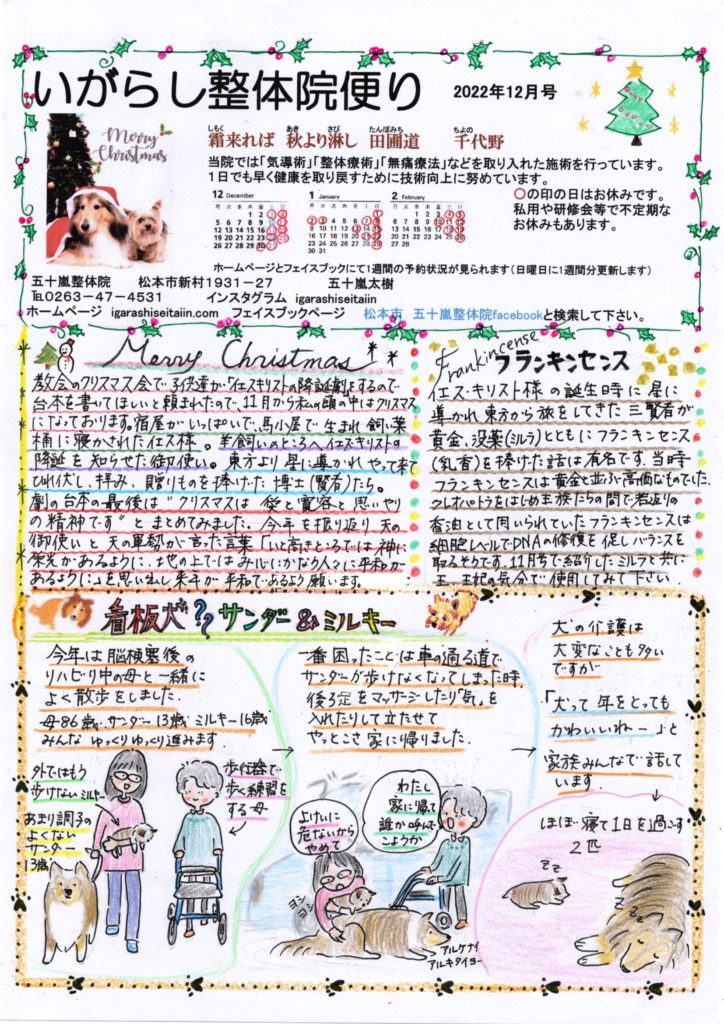 いがらし整体院便り
2022年12月号
霜来れば 秋より淋し 田圃道 千代野
しも あき さび たんぼみち ちよの
当院では「気導術」「整体療術」「無痛療法」などを取り入れた施術を行っています。
1日でも早く健康を取り戻すために技術向上に努めています。
Merry
Christmas
12 December
1 January
2 February
〇の印の日はお休みです。
私用や研修会等で不定期な
お休みもあります。
ホームページとフェイスブックにて1週間の予約状況が見られます(日曜日に1週間分更新します)
五十嵐整体院 松本市新村1931-27 五十嵐太樹
℡0263-47-4531 インスタグラム igarashiseitaiin
ホームページ igarashiseitaiin.com フェイスブックページ 松本市 五十嵐整体院facebookと検索して下さい。
Merry Christmas
教会のクリスマス会で子供達が「イエスキリストの降誕劇」をするので
台本を書いてほしいと頼まれたので、11月から私の頭の中はクリスマス
になっております。宿屋がいっぱいで、馬小屋で生まれ飼い葉
桶に寝かされたイエス様。羊飼いのところへイエスキリストの
降誕を知らせた御使い。東方より星に導かれやって来て
ひれ伏し、拝み、贈りものを捧げた博士(賢者)たち。
劇の台本の最後は"クリスマスは 愛と寛容と思いやり
の精神です"とまとめてみました。今年を振り返り 天の
御使いと天の軍勢が言った言葉「いと高きところでは神に
栄光があるように、地の上ではみ心にかなう人々に平和が
あるように」を思い出し来年が平和であるよう願います。
Frankincense
フランキンセンス
イエス・キリスト様の誕生時に星に
導かれ東方から旅をしてきた三賢者が
黄金、没薬(ミルラ)とともにフランキンセンス
(乳香)を捧げた話は有名です。当時
フランキンセンスは黄金と並ぶ高価なものでした。
クレオパトラをはじめ王族たちの間で若返りの
香油として用いられていたフランキンセンスは
細胞レベルでDNAの修復を促しバランスを
取るそうです。11月号で紹介したミルラと共に
王、王妃の気分で使用してみて下さい
看板犬?? サンダー&ミルキー
今年は脳梗塞後の
リハビリ中の母と一緒に
よく散歩をしました。
母86歳 サンダー13歳 ミルキー16歳
みんなゆっくりゆっくり進みます
外ではもう
歩けないミルキー
あまり調子の
よくない
サンダー
13歳
歩行器で
歩く練習を
する母
一番困ったことは車の通る道で
サンダーが歩けなくなってしまった時。
後ろ足をマッサージしたり「気」を
入れたりして立たせて
やっとこさ家に帰りました。
よけいに
危ないから
やめて
わたし
家に帰って
誰か呼んで
こようか
ヨシ
ヨシ
アルケナイ
アルキタイヨー
犬の介護は
大変なことも多い
ですが
「犬って年をとっても
かわいいねー」と
家族みんなで話して
います。
ほぼ寝て1日を過ごす
2匹
zz
zz